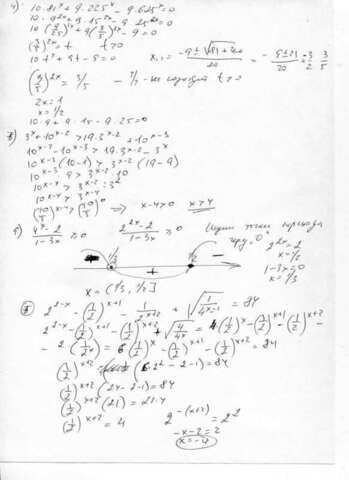 4) 10·81^x + 9·225^x - 9·625^x = 0
10·9^2x + 9·15^2x - 9·25^2x = 0
10(9/25)^2x + 9(3/5)^2x - 9 = 0
(3/5)^2x = t t>0
10t² + 9t - 9 = 0 x₁,₂ = (-9 ± √(81+360))/20 = (-9 ± 21)/20 = 3/5
(3/5)^2x = 3/5 t>0
2x = 1
x = 1/2
10·9 + 9·15 - 9·25 = 0
3^x + 10^x-2 > 19·3^x-2 + 10^x-3
10^x-2 - 10^x-3 > 19·3^x-2 - 3^x
10^x-3 (10-1) > 3^x-2 (19-9)
10^x-3·9 > 3^x-2·10
10^x-4 > 3^x-2 : 3²
10^x-4 > 3^x-4
(10/3)^x-4 > (10/3)^0 => x-4>0 x>4
(4^x - 2)/(1-3x) ≥ 0 (2^2x - 2)/(1-3x) ≥ 0
2^2x = 2
x = 1/2
1-3x = 0
x = 1/3
1/3 1/2
+ -
x = (1/3, 1/2]
2^2-x - (1/2)^x+1 - 1/2^x+2 + √(1/4^x-1) = 84
2^2-x - (1/2)^x+1 - (1/2)^x+2 + √(4/4^x) = 4(1/2)^x - (1/2)^x+1 - (1/2)^x+2 -
- 2(1/2^x) = 6(1/2)^x - (1/2)^x+1 - (1/2)^x+2 = 84
(1/2)^x+2 (6·2² - 2 - 1) = 84
(1/2)^x+2 (24-2-1) = 84
(1/2)^x+2 (21) = 21·4
(1/2)^x+2 = 4 2^-(x+2) = 2²
-x-2 = 2
x = -4